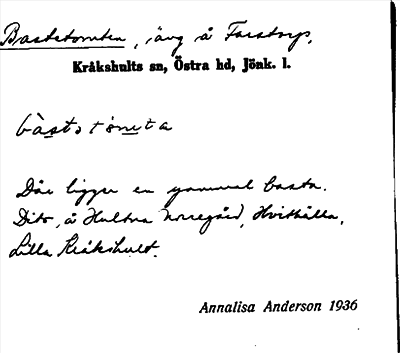 Bastetomten, äng å Farstorp.
Kråkshults sn, Östra hd, Jönk. l.
bàstotòmta
Där ligger en gammal basta.
Dito, å Hultna Norregård, Hvithälla,
Lilla Kråkshult.
Annalisa Anderson 1936